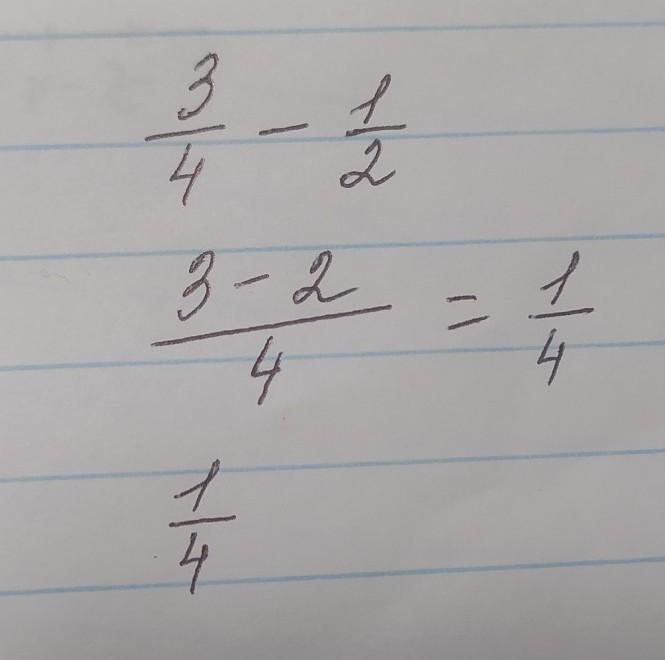 3/4 - 1/2
3 - 2/4 = 1/4
1/4